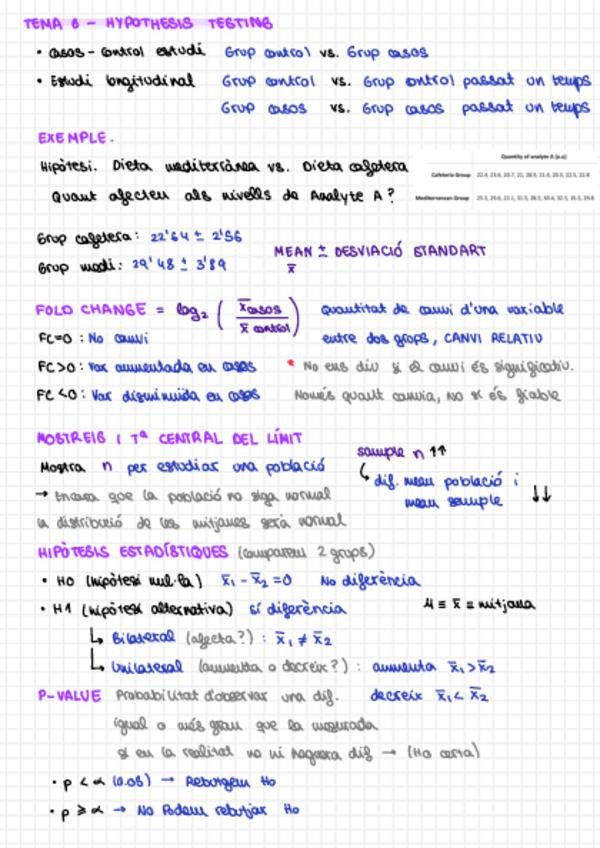 TEMA 6 - HYPOTHESIS TESTING
• Casos - Control estudi Grup control vs. Grup casos
• Estudi longitudinal Grup control vs. Grup control passat un temps
Grup casos vs. Grup casos passat un temps
EXEMPLE.
Hipòtesi. Dieta mediterrànea vs. Dieta cafetera
Quant afecten als nivells de Analyte A?
Quantity of analyte A (a.u)
Cafeteria Group
Mediterranean Group
Grup cafetera: 22'64 ± 2'56
Grup medi: 29'48 ± 3'89
MEAN ± DESVIACIÓ STANDART
x̄
FOLD CHANGE = log₂ ( x̄casos / x̄ control )
Quantitat de canvi d'una variable
entre dos grops, CANVI RELATIU
FC=0: No canvi
FC>0: Var aumentada en casos
* No ens diu si el canvi és significatiu.
FC<0: Var disminuida en casos
Només quant canvia, no si és fiable
MOSTREIG I Tª CENTRAL DEL LÍMIT
Mostra n per estudiar una població
sample n ↑↑
dif. mean població i
mean sample ↓↓
→ Encara que la població no siga normal
la distribució de les mitjanes serà normal
HIPÒTESIS ESTADÍSTIQUES (comparem 2 grups)
• H0 (hipòtesi nul·la) x̄₁ - x̄₂ = 0 No diferència
• H1 (hipòtesi alternativa) sí diferència
μ ≡ x̄ ≡ mitjana
↳ Bilateral (afecta?) : x̄₁ ≠ x̄₂
↳ Unilateral (aumenta o decreix?) : aumenta x̄₁ > x̄₂
decreix x̄₁ < x̄₂
P-VALUE Probabilitat d'observar una dif.
igual o més gran que la mesurada
si en la realitat no hi haguera dif → (H0 certa)
• p < α (0.05) → Rebutgem H0
• p ≥ α → No Podem rebutjar H0